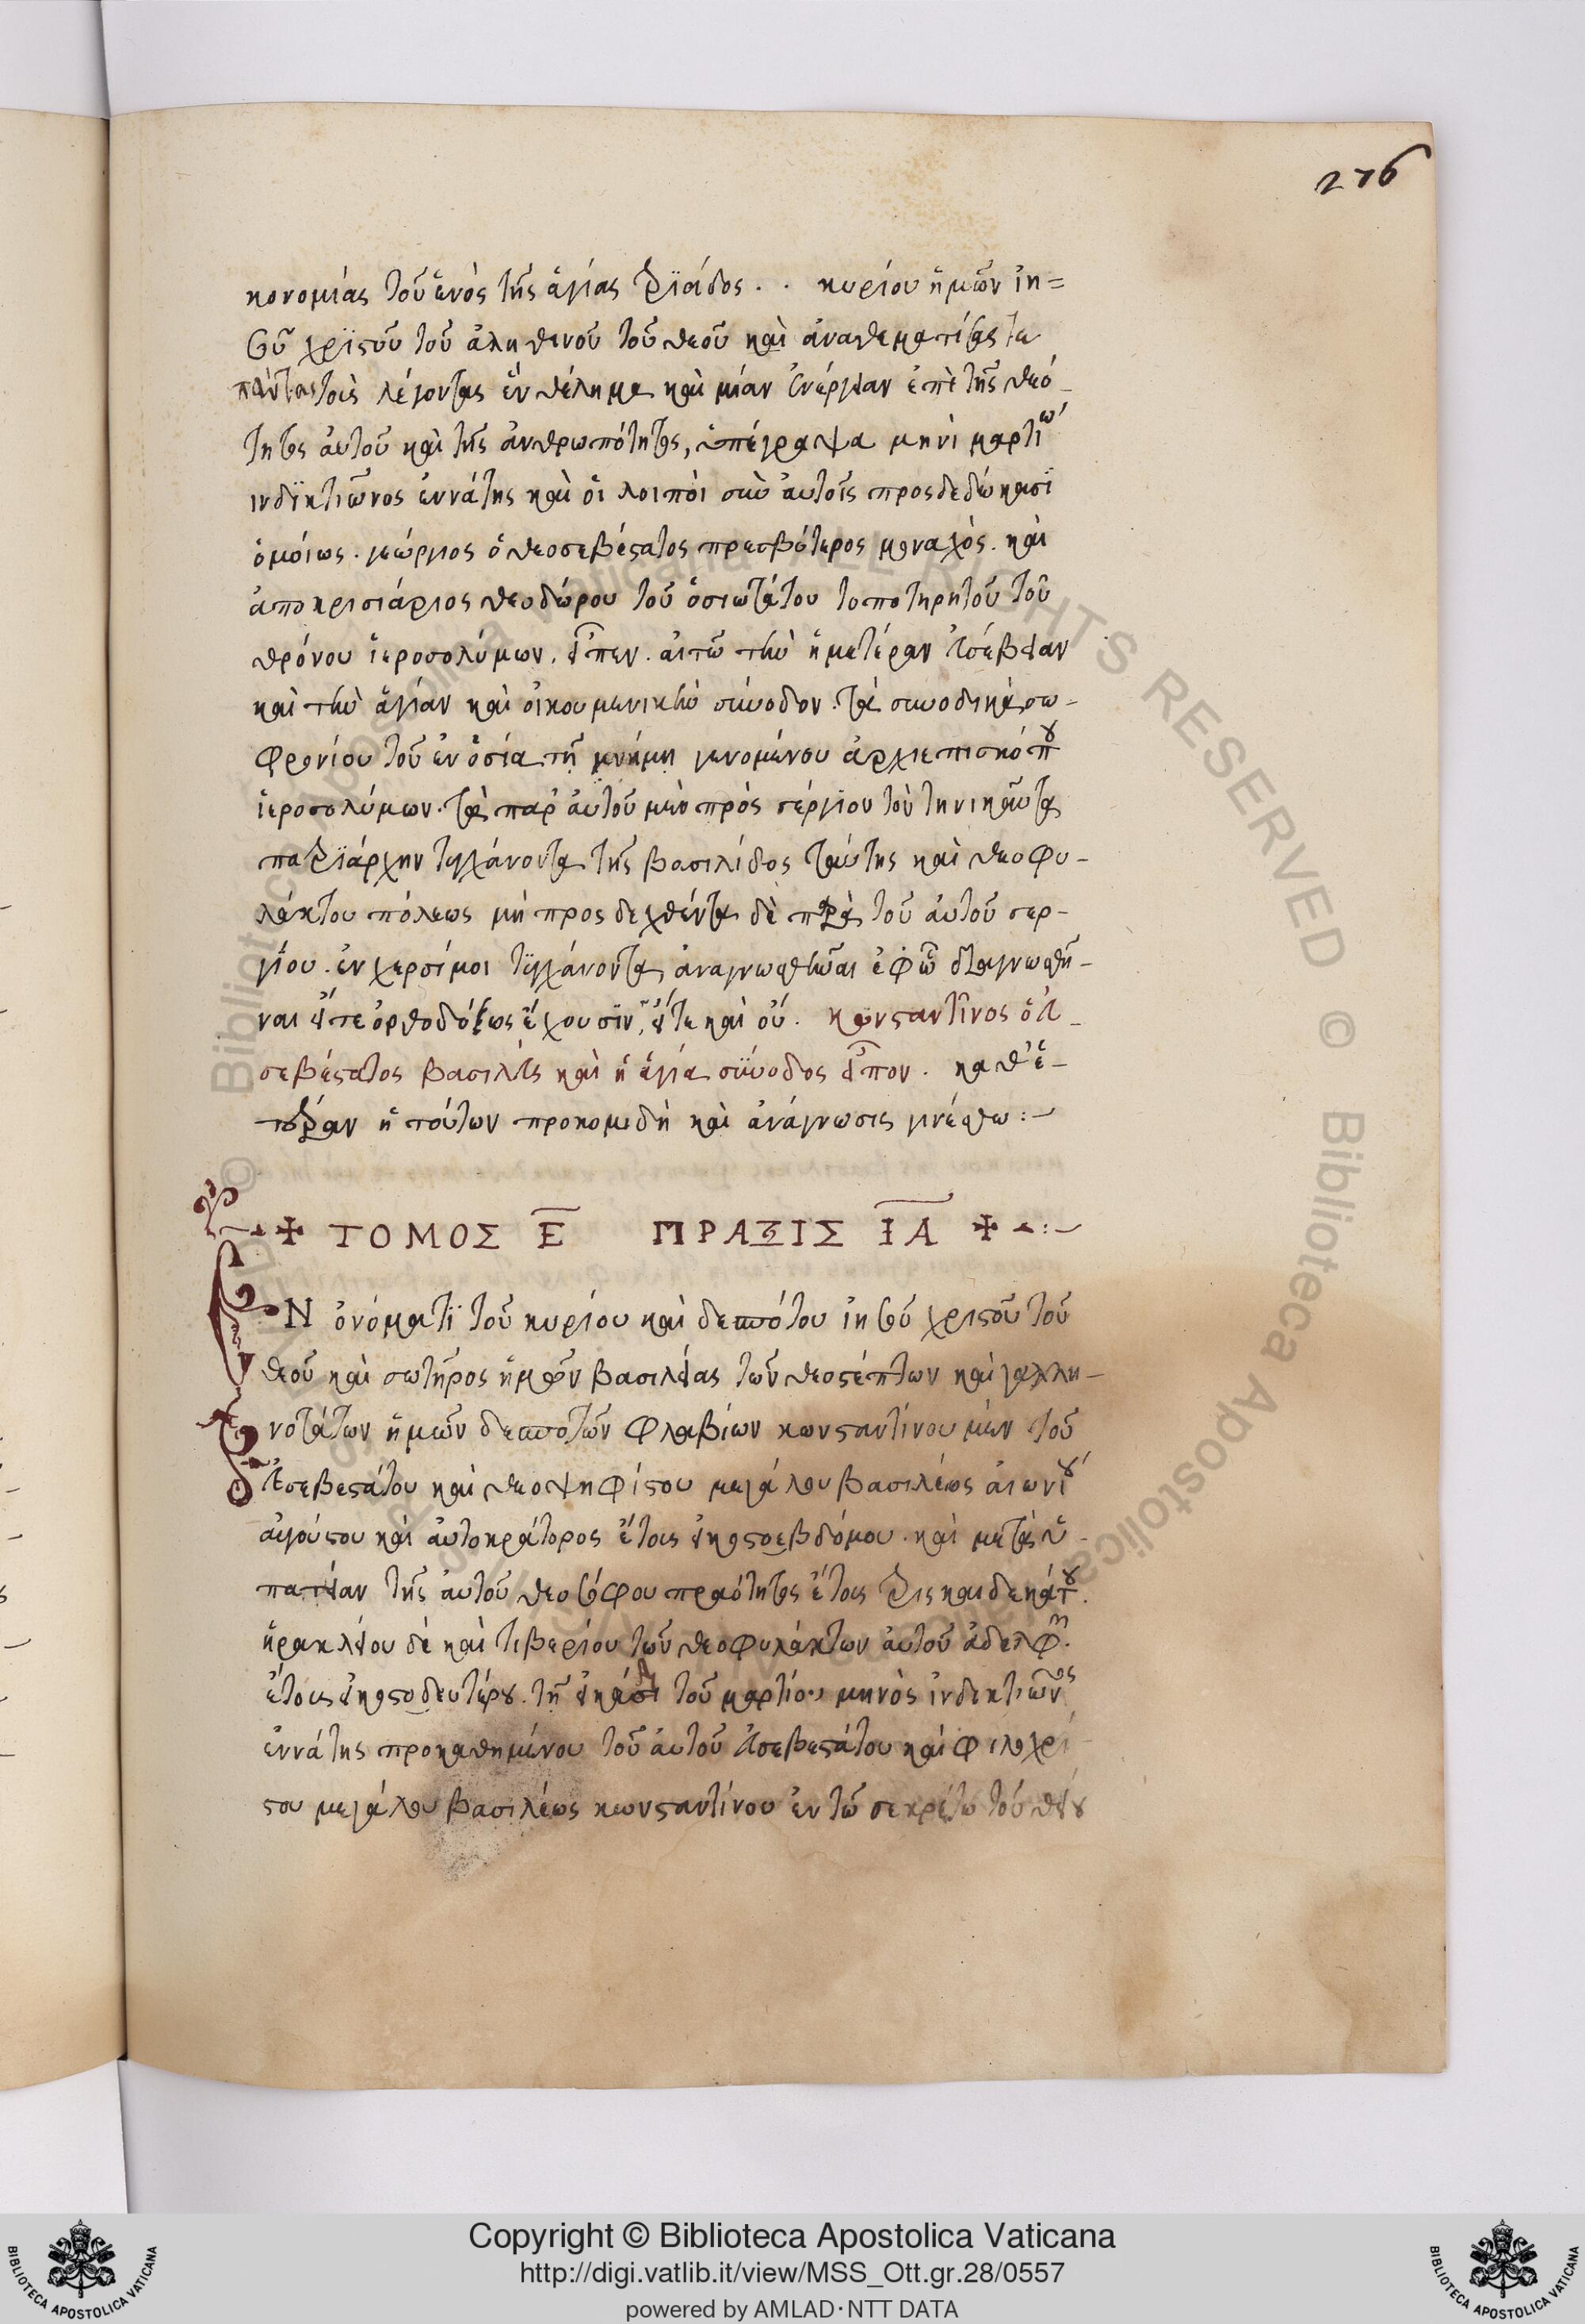 276
κονομίας τοῦ ἑνὸς τῆς ἁγίας τριάδος . . κυρίου ἡμῶν ἰη=
σοῦ χριστοῦ τοῦ ἀληθινοῦ τοῦ θεοῦ καὶ ἀναθεματίσας τε
πάντας τοὺς λέγοντας ἓν θέλημα καὶ μίαν ἐνέργειαν ἐπὶ τῆς θεό-
τητος αὐτοῦ καὶ τῆς ἀνθρωπότητος, ὑπέγραψα μηνὶ μαρτίω
ινδϊκτιῶνος ἐννάτης καὶ οἱ λοιποὶ σὺν αὐτοῖς προσδεδώκασϊ
ὁμοίως . γεώργιος ὁ θεοσεβέστατος πρεσβύτερος μοναχὸς . καὶ
ἀποκρισιάριος θεοδώρου τοῦ ὁσιωτάτου τοποτηρητοῦ τοῦ
θρόνου ἱεροσολύμων . εἶπεν . αἰτῶ τὴν ἡμετέραν εὐσέβειαν
καὶ τὴν ἁγίαν καὶ οἰκουμενικὴν σύνοδον . τὰ συνοδικὰ σω-
φρονίου τοῦ ἐν ὁσία τῇ μνήμη γενομένου ἀρχιεπισκόπου
ἱεροσολύμων . τὰ παρ' αὐτοῦ μὲν πρὸς σέργϊον τὸν τηνικαῦτα
πατρϊάρχην τυγχάνοντα τῆς βασιλίδος ταύτης καὶ θεοφυ-
λάκτου πόλεως μὴ προσδεχθέντα δὲ παρὰ τοῦ αὐτοῦ σερ-
γίου . ἐν χερσίμοι τϋγχάνοντα ἀναγνωσθῆναι ἐφ' ᾧ διαγνωσθῆ-
ναι εἴτε ὀρθοδόξως ἔχουσϊν, εἴτε καὶ οὔ . κωνσταντῖνος ὁ εὐ-
σεβέστατος βασιλεὺς καὶ ἡ ἁγία σύνοδος εἶπον . καθ' ἑ-
τέραν ἡ τούτων προκομιδὴ καὶ ἀνάγνωσις γινέσθω :-
✠ ΤΟΜΟΣ Ε̅ ΠΡΑΞΙΣ Ι̅Α̅ ✠ :-
ΕΝ ὀνόματϊ τοῦ κυρίου καὶ δεσπότου ἰησοῦ χριστοῦ τοῦ
θεοῦ καὶ σωτῆρος ἡμῶν βασιλείας τῶν θεοστέπτων καὶ γαλλη-
νοτάτων ἡμῶν δεσποτῶν φλαβίων κωνσταντίνου μὲν τοῦ
εὐσεβεστάτου καὶ θεοψηφίστου μεγάλου βασιλέως αἰωνίου
αὐγούστου καὶ αὐτοκράτορος ἔτους εἰκοστοεβδόμου . καὶ μετὰ ὑ-
πατείαν τῆς αὐτοῦ θεοσόφου πραότητος ἔτους τρισκαιδεκάτου .
ἡρακλείου δὲ καὶ τιβερίου τῶν θεοφυλάκτων αὐτοῦ ἀδελφῶν .
ἔτους εἰκοστοδευτέρου . τῇ εἰκάδι τοῦ μαρτίου μηνὸς ἰνδικτιῶνος
ἐννάτης προκαθημένου τοῦ αὐτοῦ εὐσεβεστάτου καὶ φιλοχρί-
στου μεγάλου βασιλέως κωνσταντίνου ἐν τῶ σεκρέτω τοῦ θείου
Copyright © Biblioteca Apostolica Vaticana
http://digi.vatlib.it/view/MSS_Ott.gr.28/0557
powered by AMLAD·NTT DATA
BIBLIOTECA APOSTOLICA VATICANA
BIBLIOTECA APOSTOLICA VATICANA